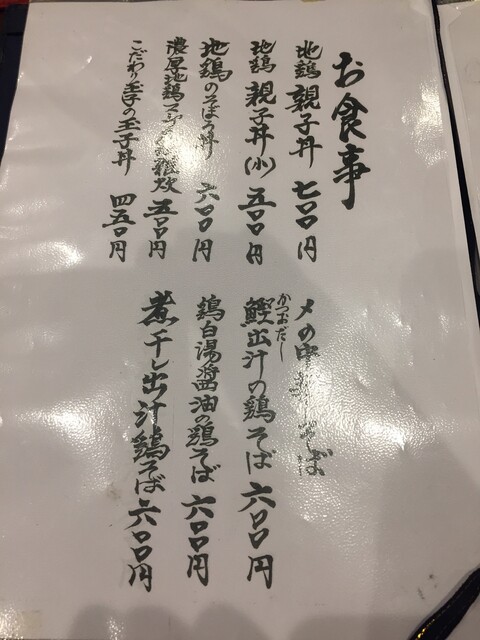 お食事
地鶏 親子丼 七〇〇円
地鶏 親子丼(小) 五〇〇円
地鶏のそぼろ丼 六〇〇円
濃厚地鶏スープの雑炊 五〇〇円
こだわり玉子の玉子丼 四五〇円
〆の中華そば
かつおだし
鰹出汁の鶏そば 六〇〇円
鶏白湯醤油の鶏そば 六〇〇円
煮干し出汁鶏そば 六〇〇円